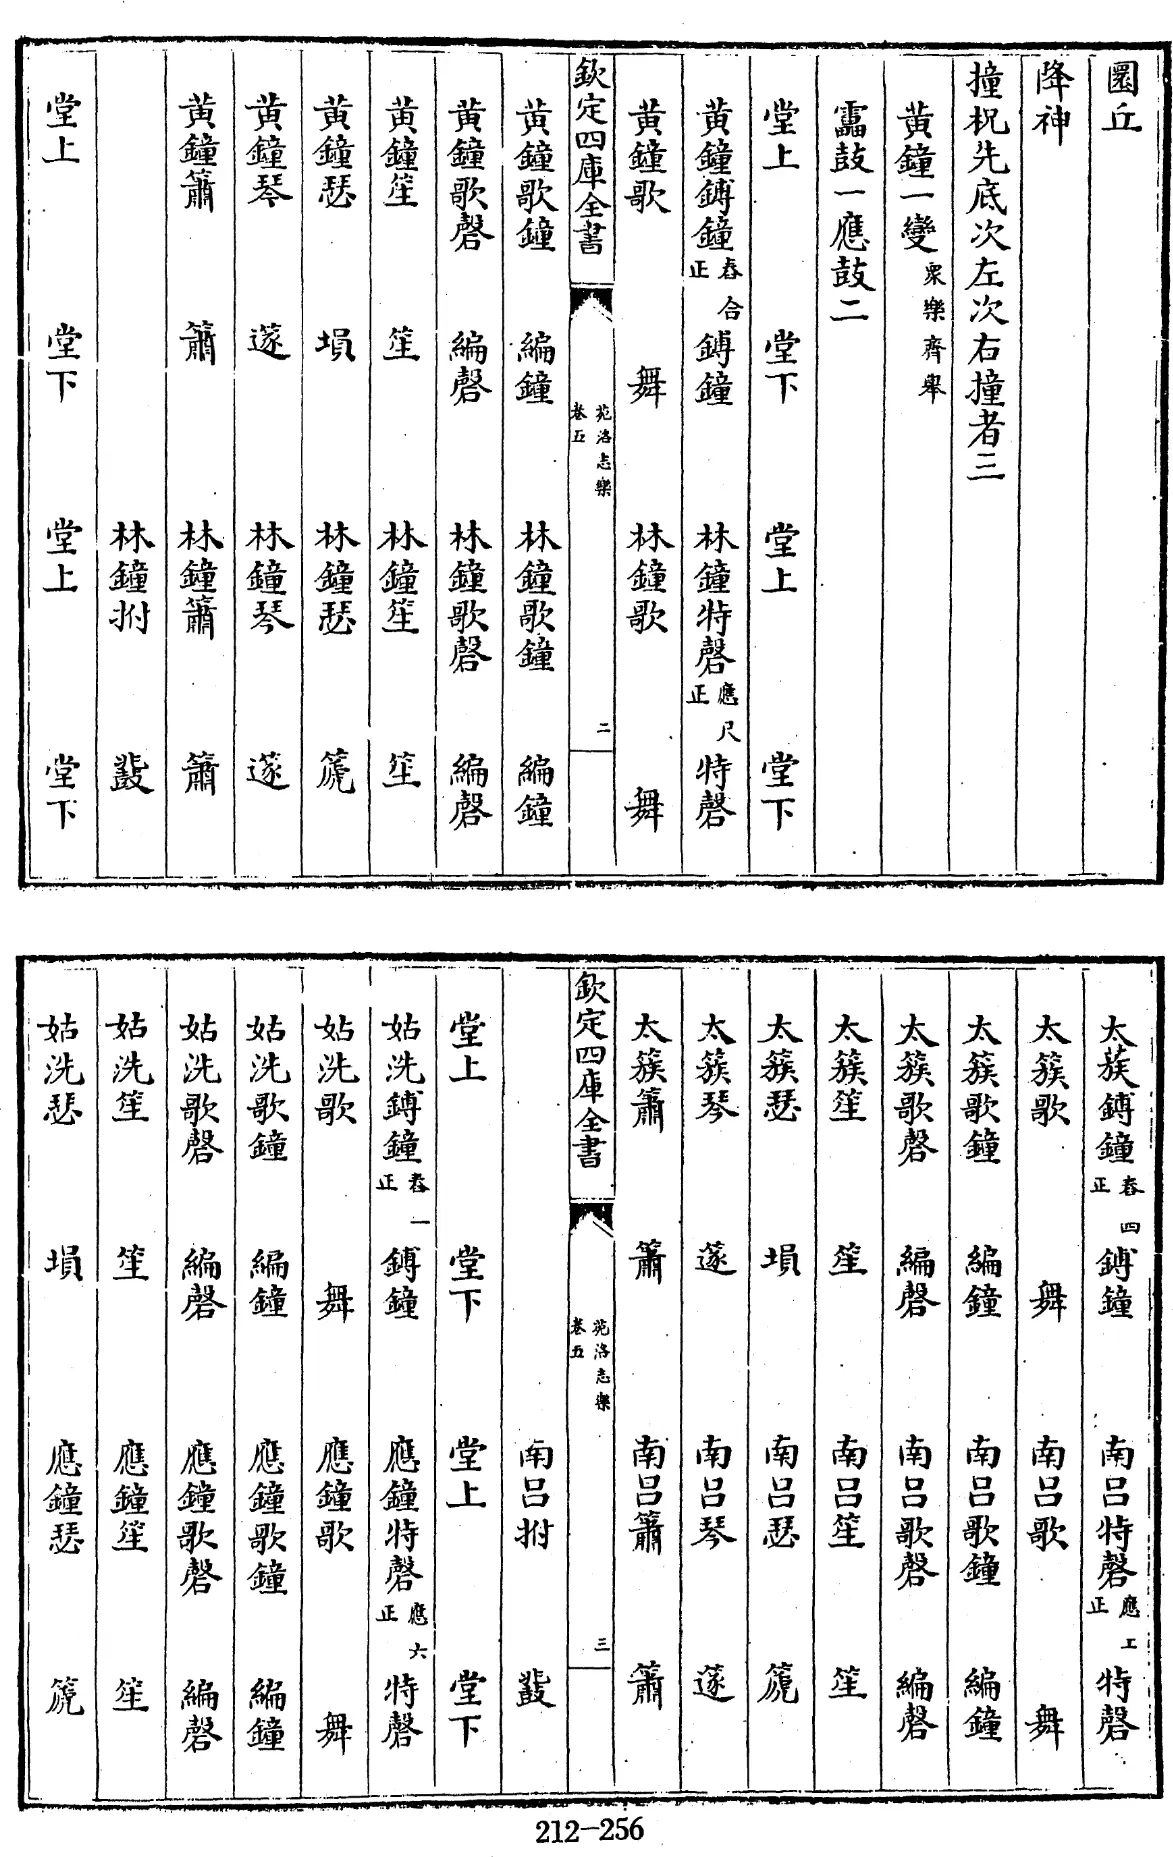 圜丘
降神
撞柷先底次左次右撞者三
黃鐘一變 衆樂齊舉
靁鼓一應鼓二
堂上 堂下 堂上 堂下
黃鐘鎛鐘 春正 合 鎛鐘 林鐘特磬 應正 尺 特磬
黃鐘歌 舞 林鐘歌 舞
欽定四庫全書 苑洛志樂 卷五 二
黃鐘歌鐘 編鐘 林鐘歌鐘 編鐘
黃鐘歌磬 編磬 林鐘歌磬 編磬
黃鐘笙 笙 林鐘笙 笙
黃鐘瑟 塤 林鐘瑟 篪
黃鐘琴 篴 林鐘琴 篴
黃鐘簫 簫 林鐘簫 簫
林鐘拊 鼗
堂上 堂下 堂上 堂下
太蔟鎛鐘 春正 四 鎛鐘 南呂特磬 應正 工 特磬
太簇歌 舞 南呂歌 舞
太簇歌鐘 編鐘 南呂歌鐘 編鐘
太簇歌磬 編磬 南呂歌磬 編磬
太簇笙 笙 南呂笙 笙
太簇瑟 塤 南呂瑟 篪
太簇琴 篴 南呂琴 篴
太簇簫 簫 南呂簫 簫
欽定四庫全書 苑洛志樂 卷五 三
南呂拊 鼗
堂上 堂下 堂上 堂下
姑洗鎛鐘 春正 一 鎛鐘 應鐘特磬 應正 六 特磬
姑洗歌 舞 應鐘歌 舞
姑洗歌鐘 編鐘 應鐘歌鐘 編鐘
姑洗歌磬 編磬 應鐘歌磬 編磬
姑洗笙 笙 應鐘笙 笙
姑洗瑟 塤 應鐘瑟 篪
212-256